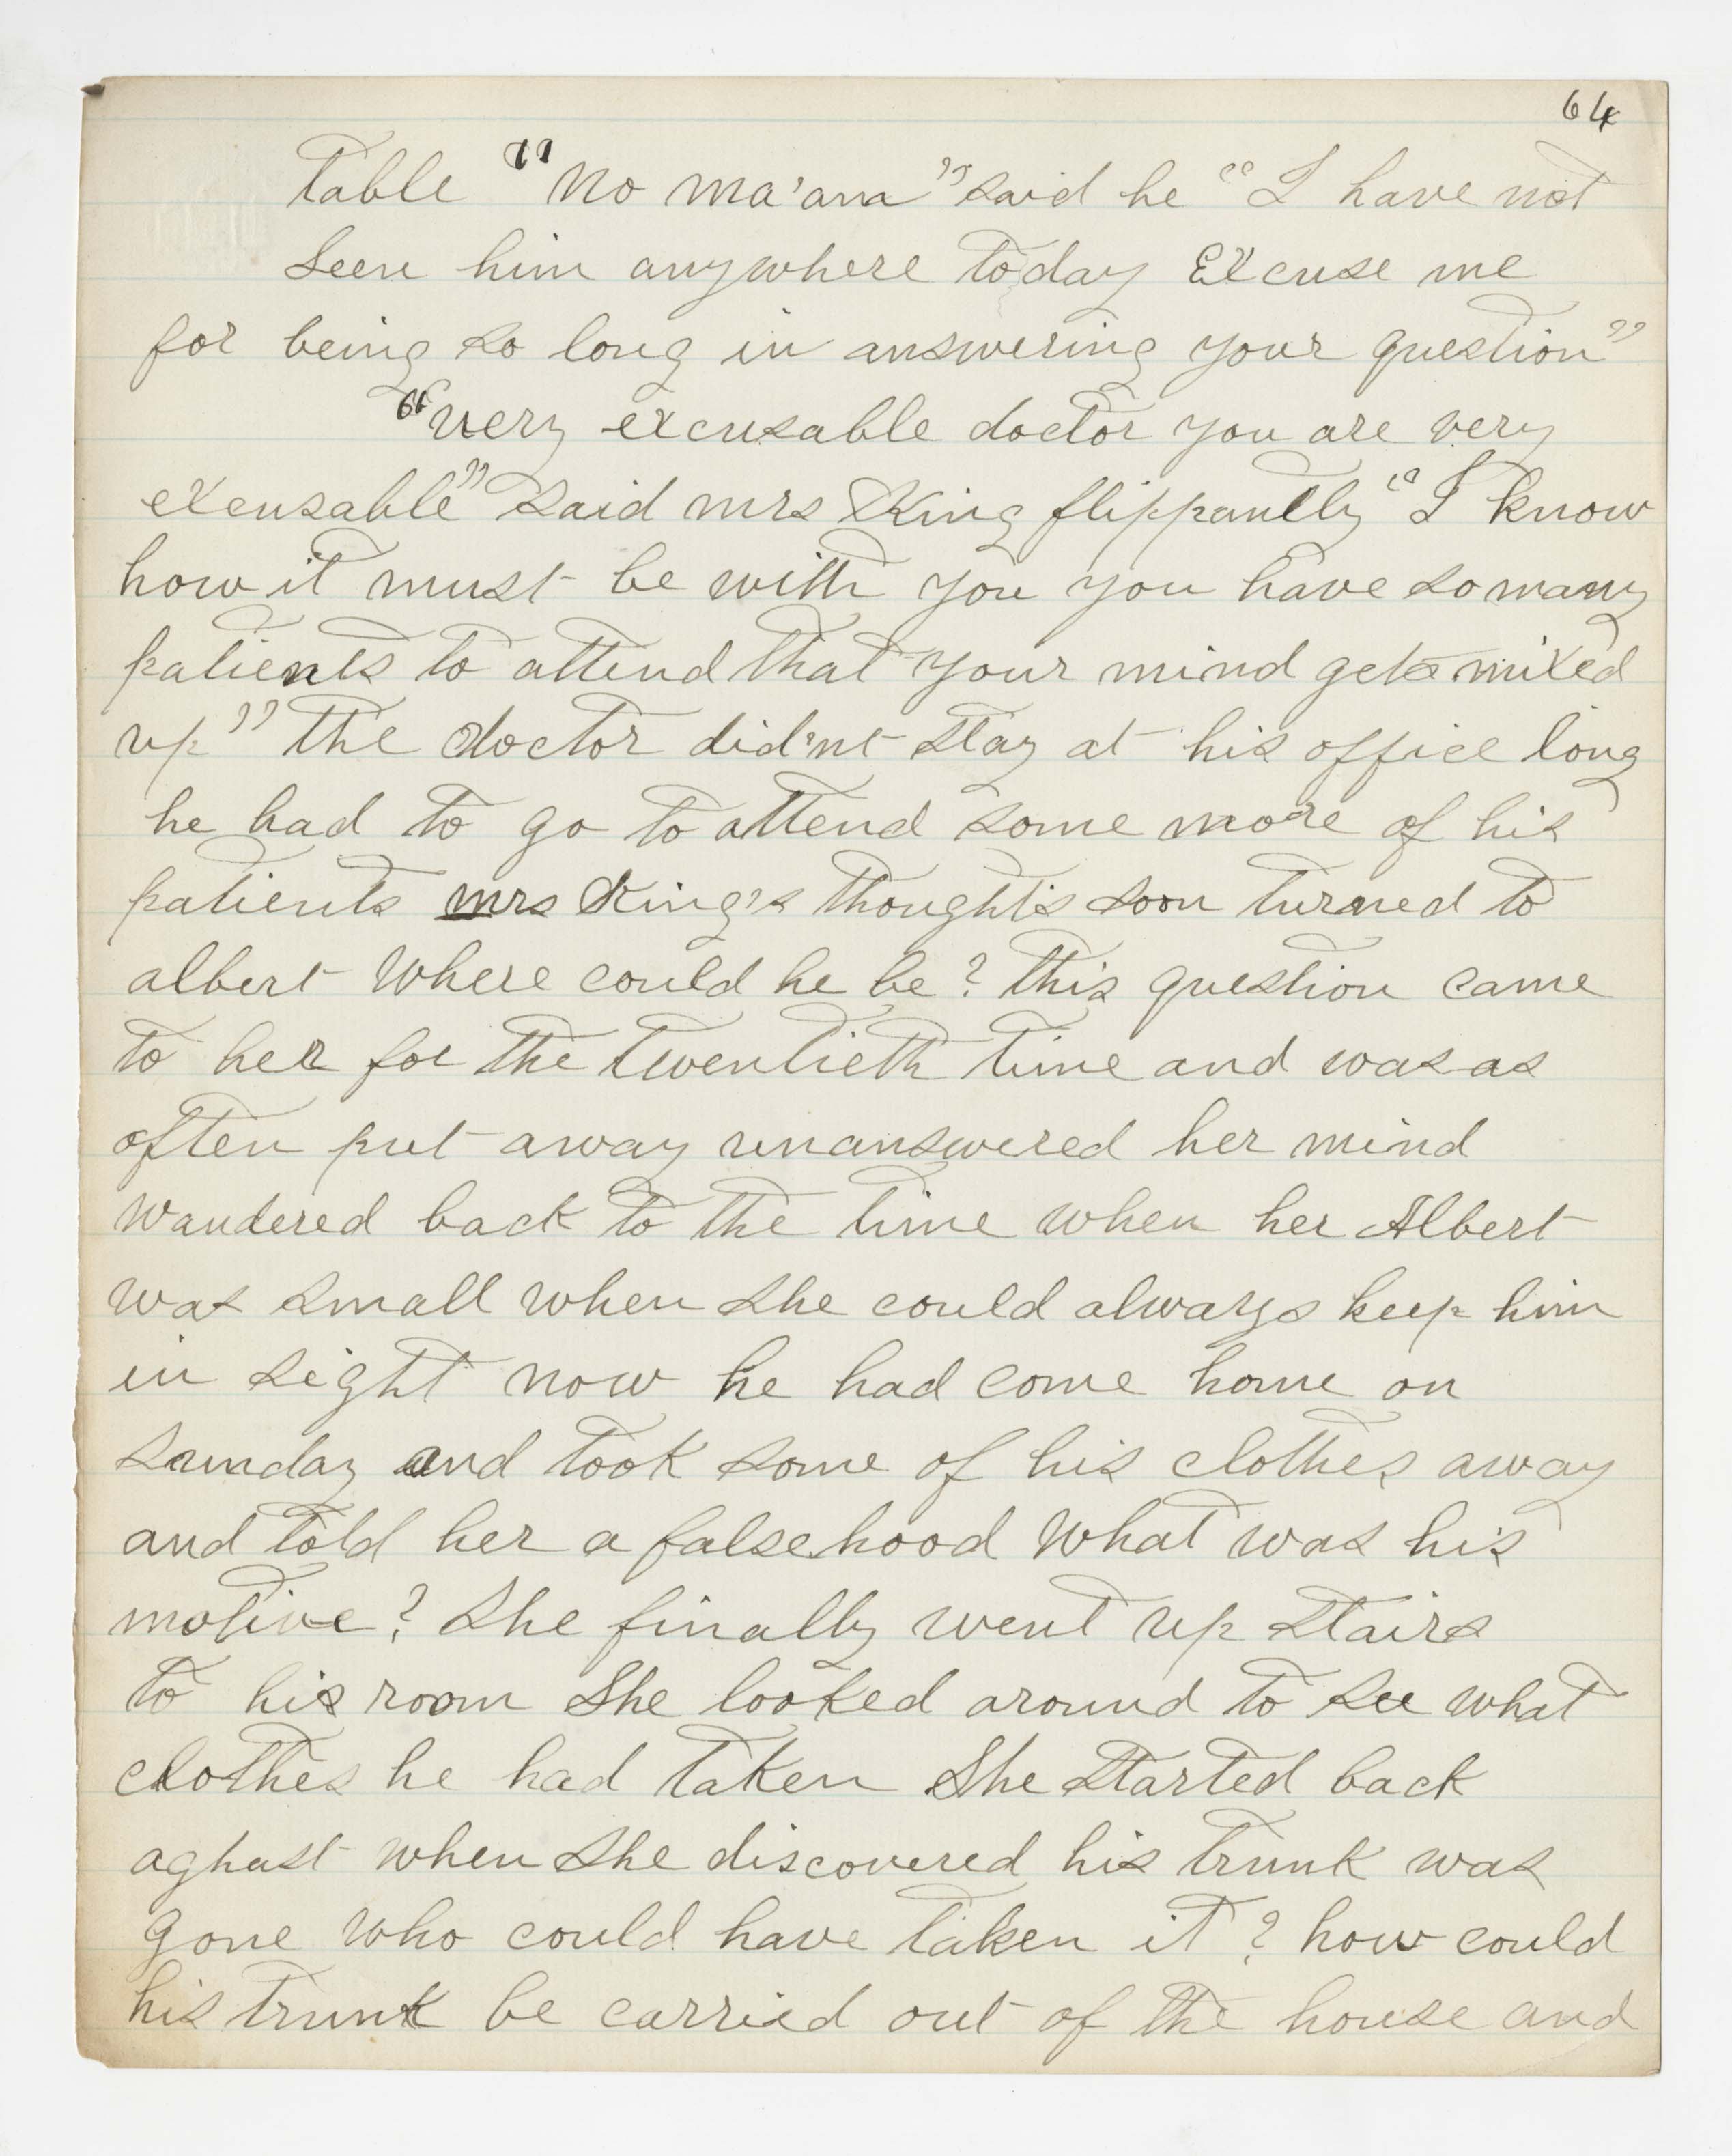 64
Table "No ma'am" said he "I have not
seen him anywhere today Excuse me
for being so long in answering your question"
"very excusable doctor you are very
excusable" said mrs King flippantly "I know
how it must be with you you have so many
patients to attend that your mind gets mixed
up" the doctor did'nt stay at his office long
he had to go to attend some more of his
patients mrs King's thoughts soon turned to
albert Where could he be? this question came
to her for the twentieth time and was as
often put away unanswered her mind
wandered back to the time when her Albert
was small when she could always keep him
in sight now he had come home on
sunday and took some of his clothes away
and told her a falsehood What was his
motive? She finally went up stairs
to his room She looked around to see what
clothes he had taken She started back
aghast when she discovered his trunk was
gone who could have taken it? how could
his trunk be carried out of the house and